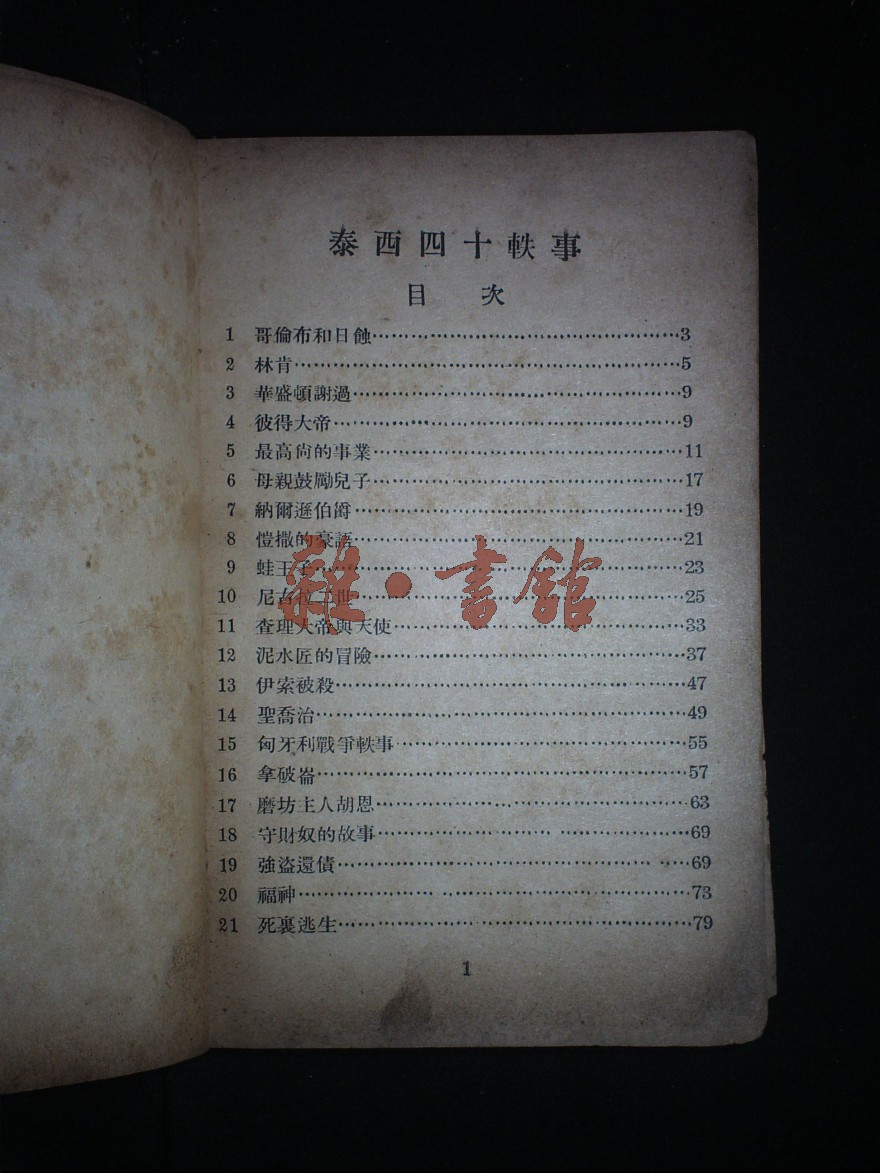 泰西四十軼事
目 次
1 哥倫布和日蝕……………………………3
2 林肯……………………………5
3 華盛頓謝過……………………………9
4 彼得大帝……………………………9
5 最高尙的事業……………………………11
6 母親鼓勵兒子……………………………17
7 納爾遜伯爵……………………………19
8 愷撒的豪語……………………………21
9 蛙王子……………………………23
10 尼古拉二世……………………………25
11 查理大帝與天使……………………………33
12 泥水匠的冒險……………………………37
13 伊索被殺……………………………47
14 聖喬治……………………………49
15 匈牙利戰爭軼事……………………………55
16 拿破崙……………………………57
17 磨坊主人胡恩……………………………63
18 守財奴的故事……………………………69
19 強盜還債……………………………69
20 福神……………………………73
21 死裏逃生……………………………79
1
雜·書館